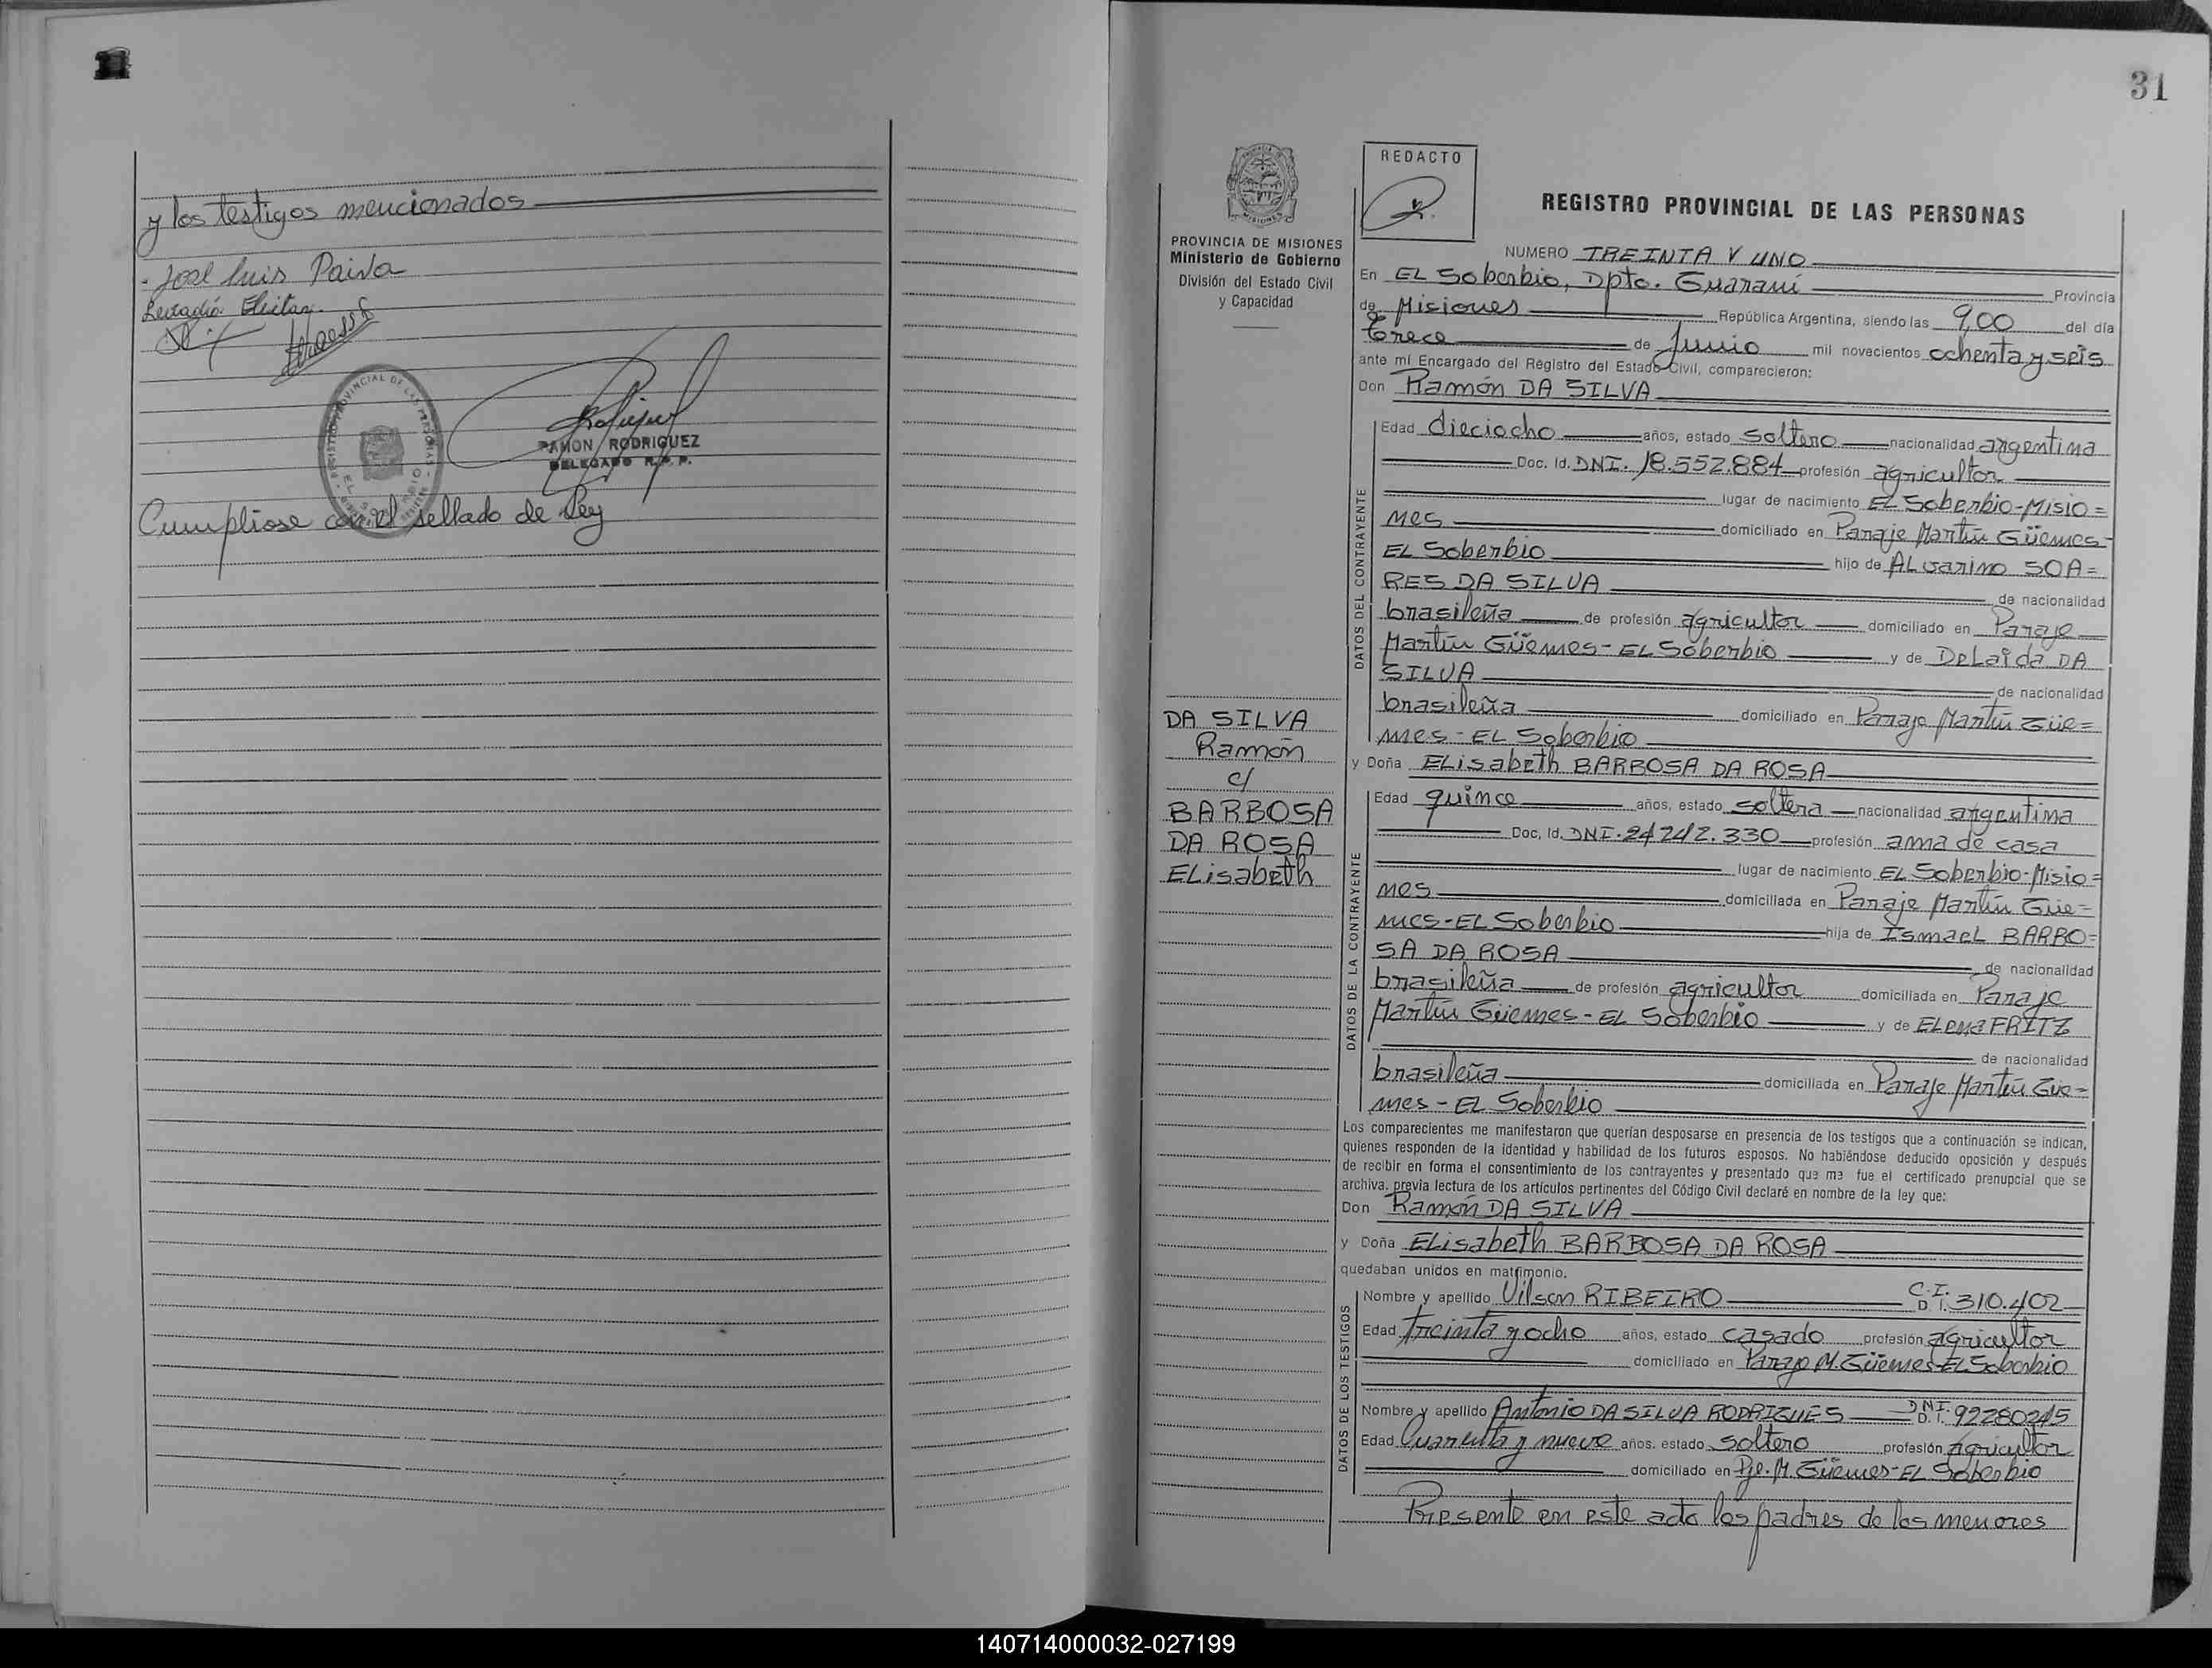 y los testigos mencionados
- José Luis Paiva
REGISTRO PROVINCIAL DE LAS PERSONAS
RAMON RODRIGUEZ
DELEGADO R.P.P.
Cumpliose con el sellado de Ley
31
PROVINCIA DE MISIONES
Ministerio de Gobierno
División del Estado Civil
y Capacidad
DA SILVA
Ramón
c/
BARBOSA
DA ROSA
ELisabeth
REDACTO
REGISTRO PROVINCIAL DE LAS PERSONAS
NUMERO TREINTA Y UNO
En EL Soberbio, Dpto. Guaraní Provincia
de Misiones República Argentina, siendo las 9,00 del día
trece de Junio mil novecientos ochenta y seis
ante mí Encargado del Registro del Estado Civil, comparecieron:
Don Ramón DA SILVA
DATOS DEL CONTRAYENTE
Edad dieciocho años, estado soltero nacionalidad argentina
Doc. Id. DNI. 18.552.884 profesión agricultor
lugar de nacimiento EL Soberbio-Misio=
nes domiciliado en Paraje Martín Güemes-
EL Soberbio hijo de ALvarino SOA=
RES DA SILVA de nacionalidad
brasileña de profesión agricultor domiciliado en Paraje
Martín Güemes- EL Soberbio y de DeLaida DA
SILVA de nacionalidad
brasileña domiciliado en Paraje Martín Güe=
mes - EL Soberbio
y Doña ELisabeth BARBOSA DA ROSA
DATOS DE LA CONTRAYENTE
Edad quince años, estado soltera nacionalidad argentina
Doc. Id. DNI. 24242.330 profesión ama de casa
lugar de nacimiento EL Soberbio-Misio=
nes domiciliada en Paraje Martín Güe=
mes-EL Soberbio hija de Ismael BARBO=
SA DA ROSA de nacionalidad
brasileña de profesión agricultor domiciliada en Paraje
Martín Güemes - EL Soberbio y de ELena FRITZ
de nacionalidad
brasileña domiciliada en Paraje Martín Güe=
mes - EL Soberbio
Los comparecientes me manifestaron que querían desposarse en presencia de los testigos que a continuación se indican,
quienes responden de la identidad y habilidad de los futuros esposos. No habiéndose deducido oposición y después
de recibir en forma el consentimiento de los contrayentes y presentado que me fue el certificado prenupcial que se
archiva, previa lectura de los artículos pertinentes del Código Civil declaré en nombre de la ley que:
Don Ramón DA SILVA
y Doña ELisabeth BARBOSA DA ROSA
quedaban unidos en matrimonio.
DATOS DE LOS TESTIGOS
Nombre y apellido Vilson RIBEIRO C.I. D. I. 310.402
Edad treinta y ocho años, estado casado profesión agricultor
domiciliado en Paraje M. Güemes-EL Soberbio
Nombre y apellido Antonio DA SILVA RODRIGUES DNI. D. I. 92280245
Edad Cuarenta y nueve años, estado soltero profesión agricultor
domiciliado en Pje. M. Güemes-EL Soberbio
Presente en este acto los padres de los menores
140714000032-027199